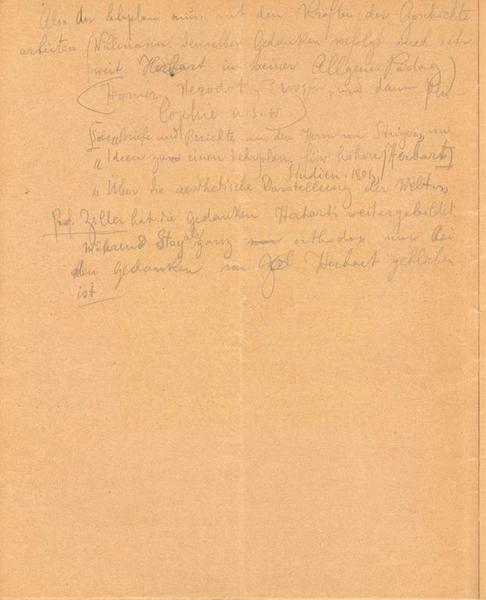 Also der Lehrplan muss mit den Kräften der Geschichte
arbeiten (Willmann denselben Gedanken verfolgt auch sehr
weit Herbart in seiner Allgem. Pädag)
(Homer, Herodot, und dann
sophie u. s. w
Briefe und Berichte an den Herrn von Steiger, von
" Ideen zu einen Lehrplan für höhere Herbart
Studien 1801
" Über die aesthetische Darstellung der Welt "
Prof. Ziller hat die Gedanken Herbarts weitergebildet,
während Stoy als ganz orthodox nur bei
den Gedanken von Herbart geblieben
ist